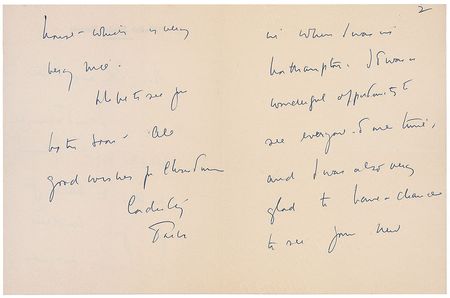 2
in when I was in
Northampton. It was a
wonderful opportunity to
see everyone at one time,
and I was also very
glad to have a chance
to see your new
house - which is very
very nice.
Hope to see you
both soon - All
good wishes for Christmas
Cordially